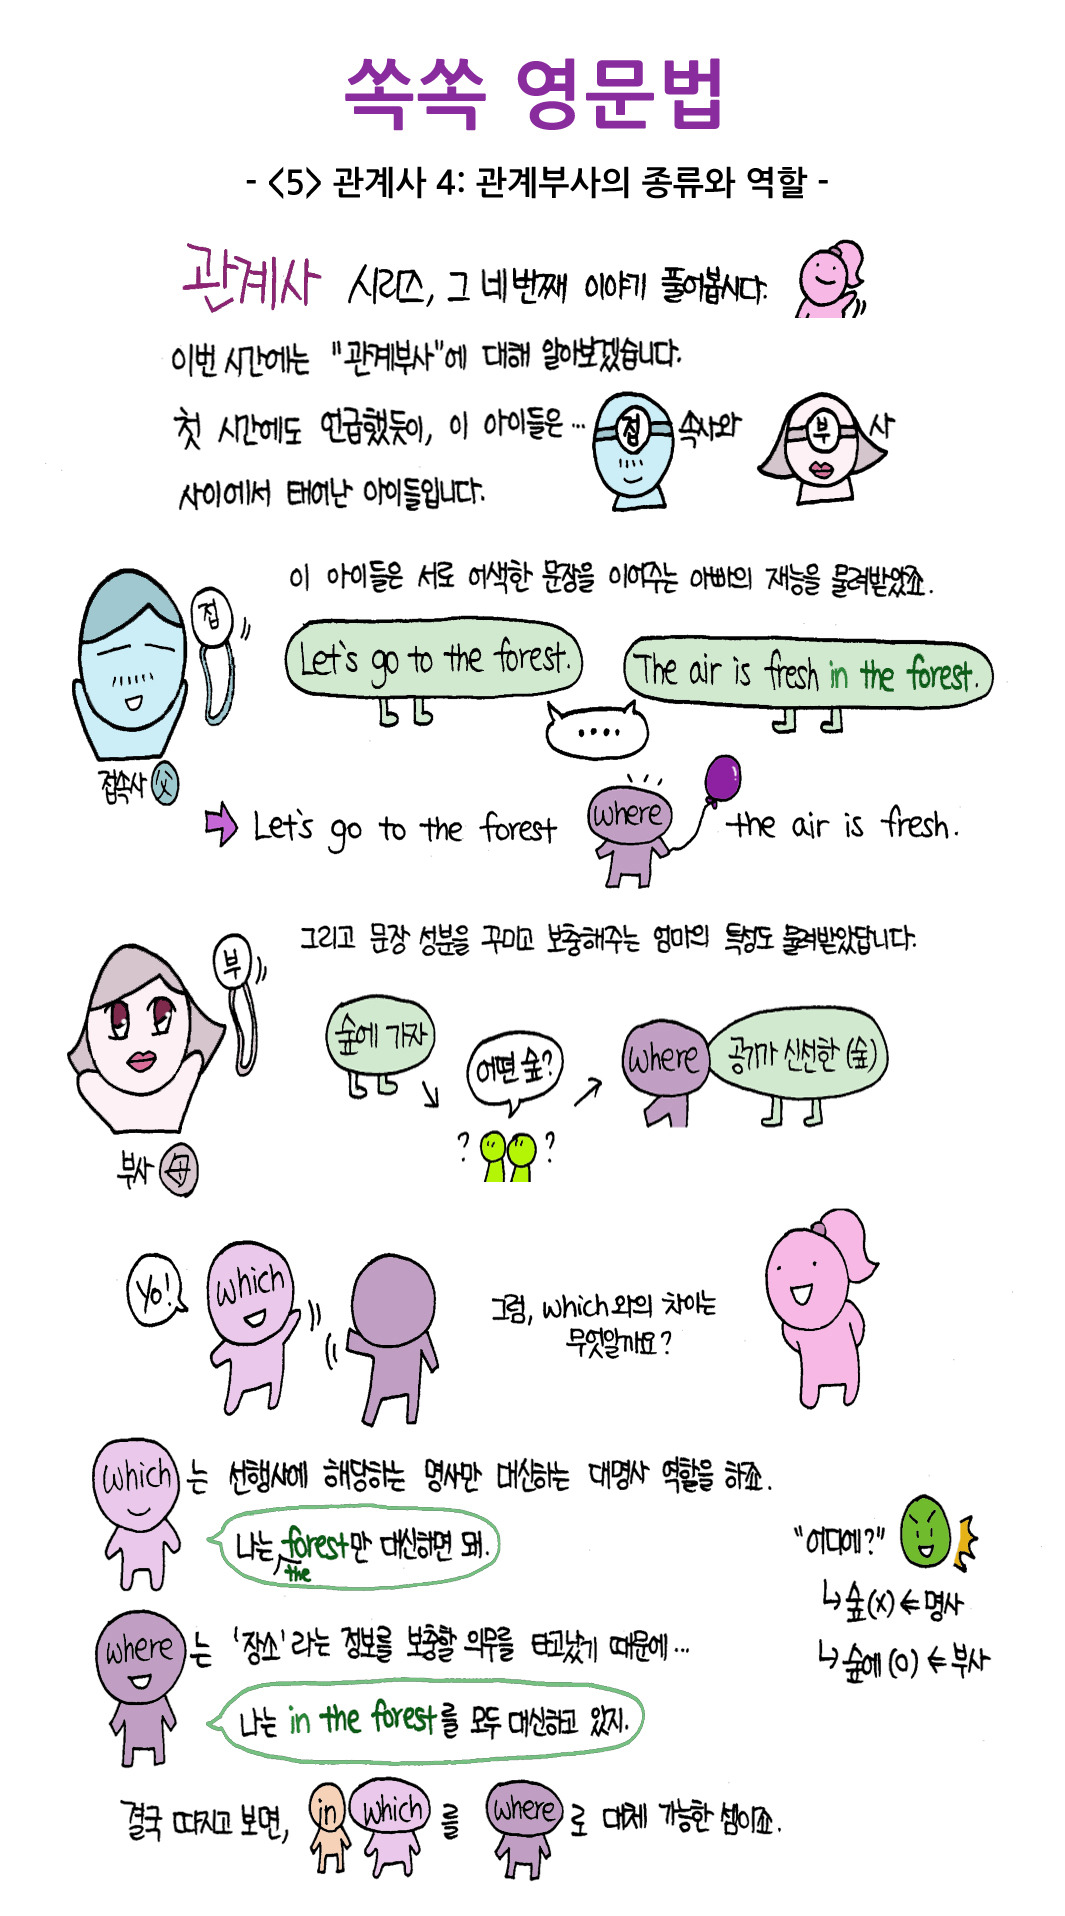 쏙쏙 영문법
- <5> 관계사 4: 관계부사의 종류와 역할 -
관계사 시리즈, 그 네 번째 이야기 풀어봅시다.
이번 시간에는 "관계부사"에 대해 알아보겠습니다.
첫 시간에도 언급했듯이, 이 아이들은… 접 속사와 부 사
사이에서 태어난 아이들입니다.
이 아이들은 서로 어색한 문장을 이어주는 아빠의 재능을 물려받았죠.
접
Let's go to the forest.
The air is fresh in the forest.
....
접속사 父
Let's go to the forest where the air is fresh.
그리고 문장 성분을 꾸미고 보충해주는 엄마의 특성도 물려받았답니다.
부
숲에 가자
어떤 숲?
where 공기가 신선한 (숲)
? ?
부사 母
Yo!
which
그럼, which와의 차이는
무엇일까요?
which는 선행사에 해당하는 명사만 대신하는 대명사 역할을 하죠.
나는 the forest만 대신하면 돼.
"어디에?"
↳숲(X) ← 명사
↳숲에 (O) ← 부사
where는 '장소'라는 정보를 보충할 의무를 타고났기 때문에…
나는 in the forest를 모두 대신하고 있지.
결국 따지고 보면, in which를 where로 대체 가능한 셈이죠.